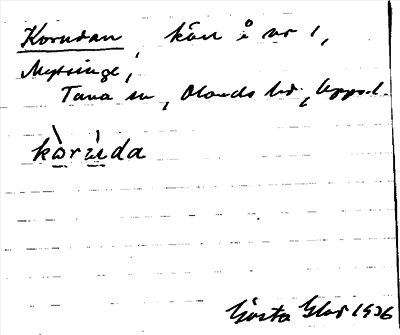 Korndan, kärr å nr 1,
Myssinge,
Tuna sn, Olands hd, Uppsal.
kòrùda
Gösta Glad 1936